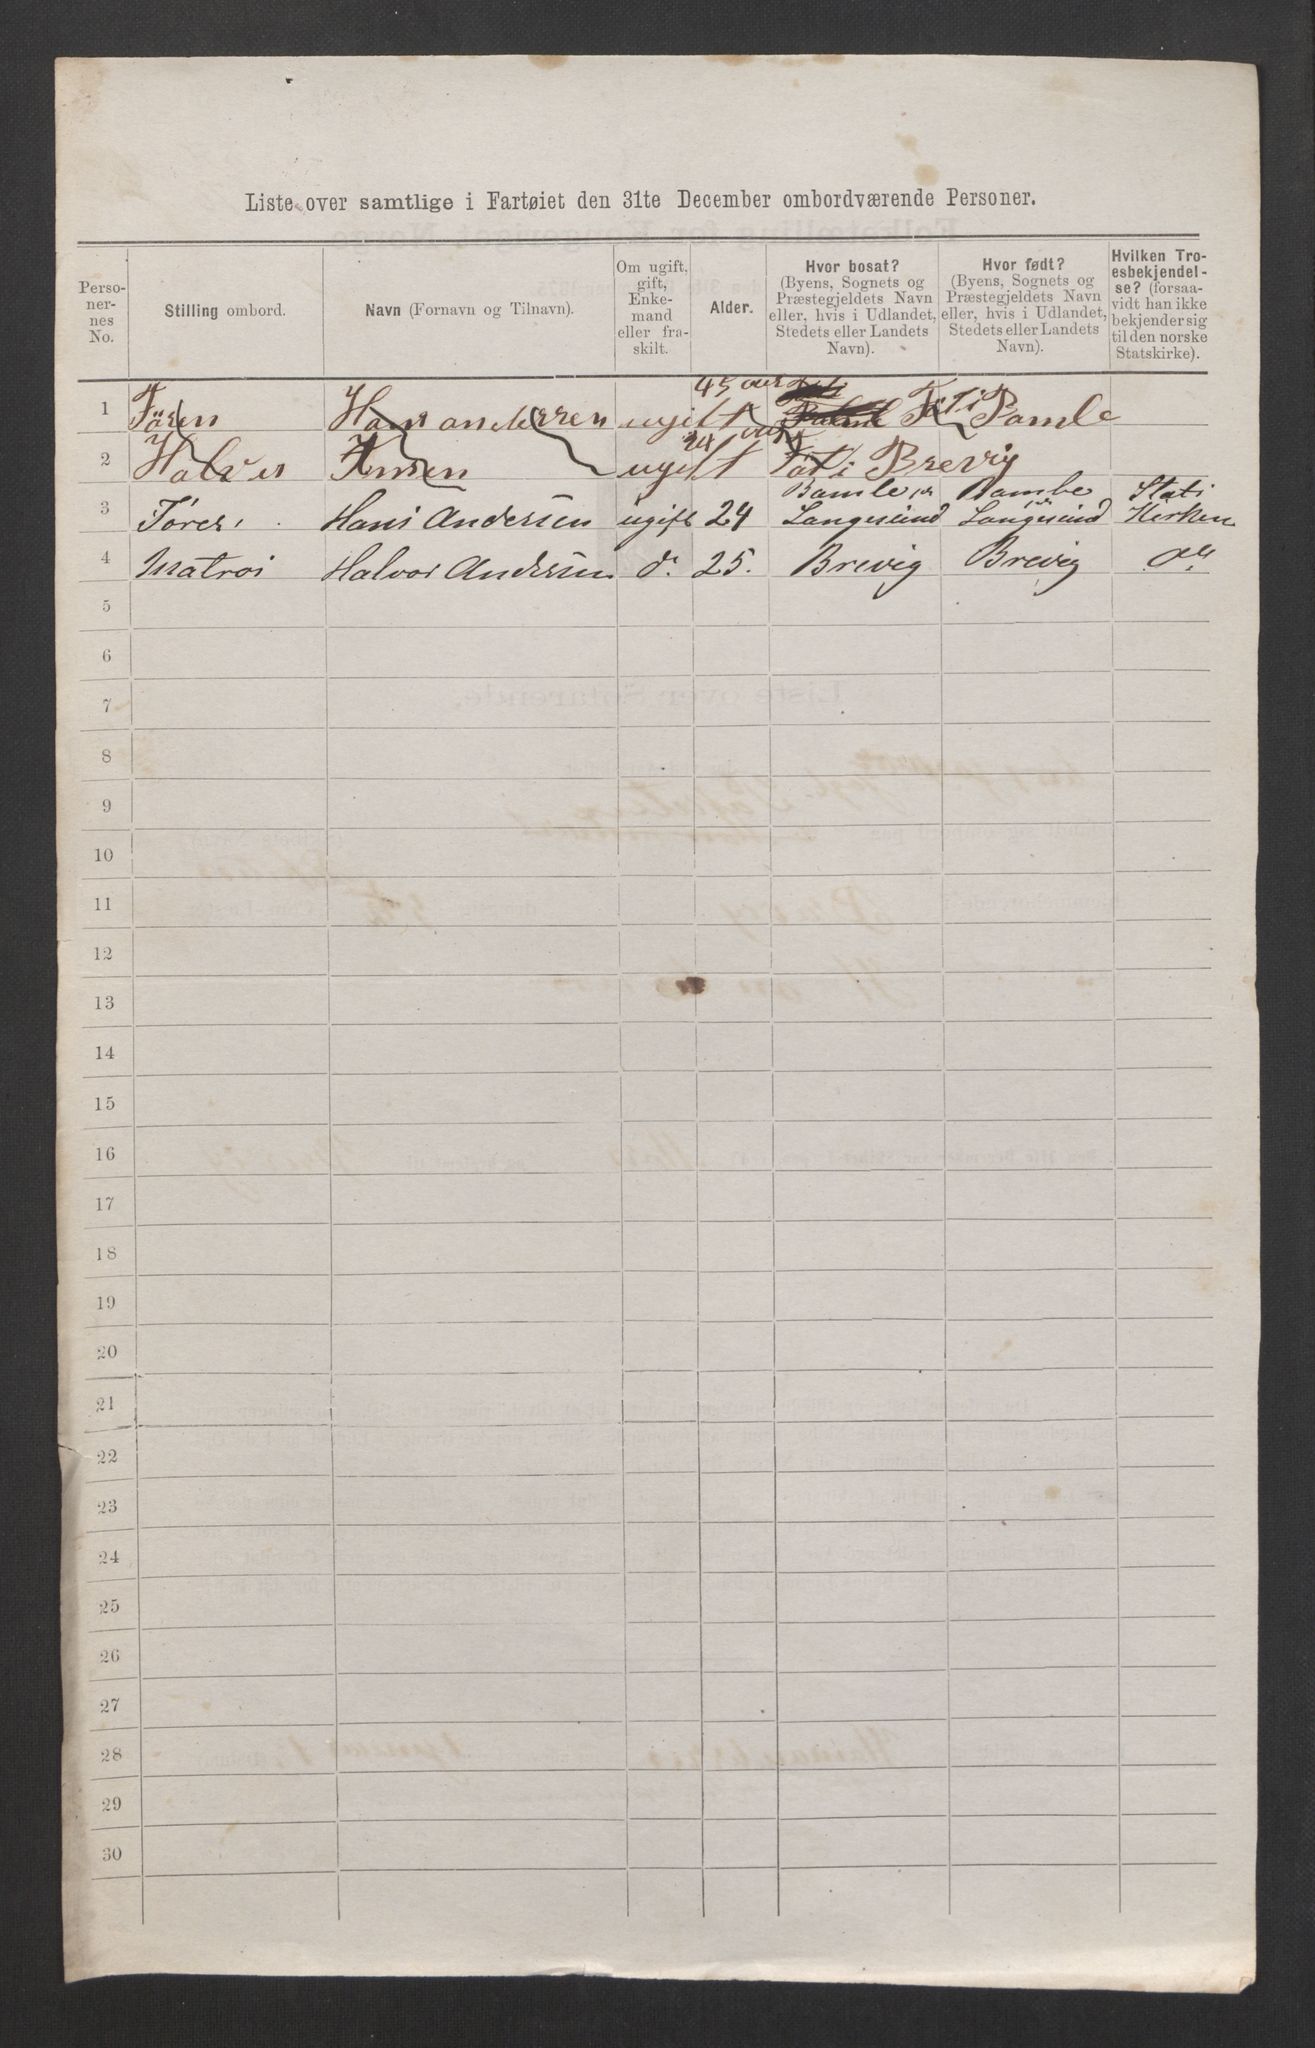 Liste over samtlige i Fartøiet den 31te December ombordværende Personer.
Personernes No.
Stilling ombord.
Navn (Fornavn og Tilnavn).
Om ugift, gift, Enkemand eller fraskilt.
Alder.
Hvor bosat? (Byens, Sognets og Præstegjeldets Navn eller, hvis i Udlandet, Stedets eller Landets Navn).
Hvor født? (Byens, Sognets og Præstegjeldets Navn eller, hvis i Udlandet, Stedets eller Landets Navn).
Hvilken Troesbekjendelse? (forsaavidt han ikke bekjender sig til den norske Statskirke).
45
1 Hans anderssen ugift i Bamle
24
2 Halvor ugift i Brevig
3 Fører Hans Andersen ugift 24 Bamle Langesund Bamble Langesund Stats Kirken
4 Matros Halvor Andersen do 25. Brevig Brevig do
5
6
7
8
9
10
11
12
13
14
15
16
17
18
19
20
21
22
23
24
25
26
27
28
29
30